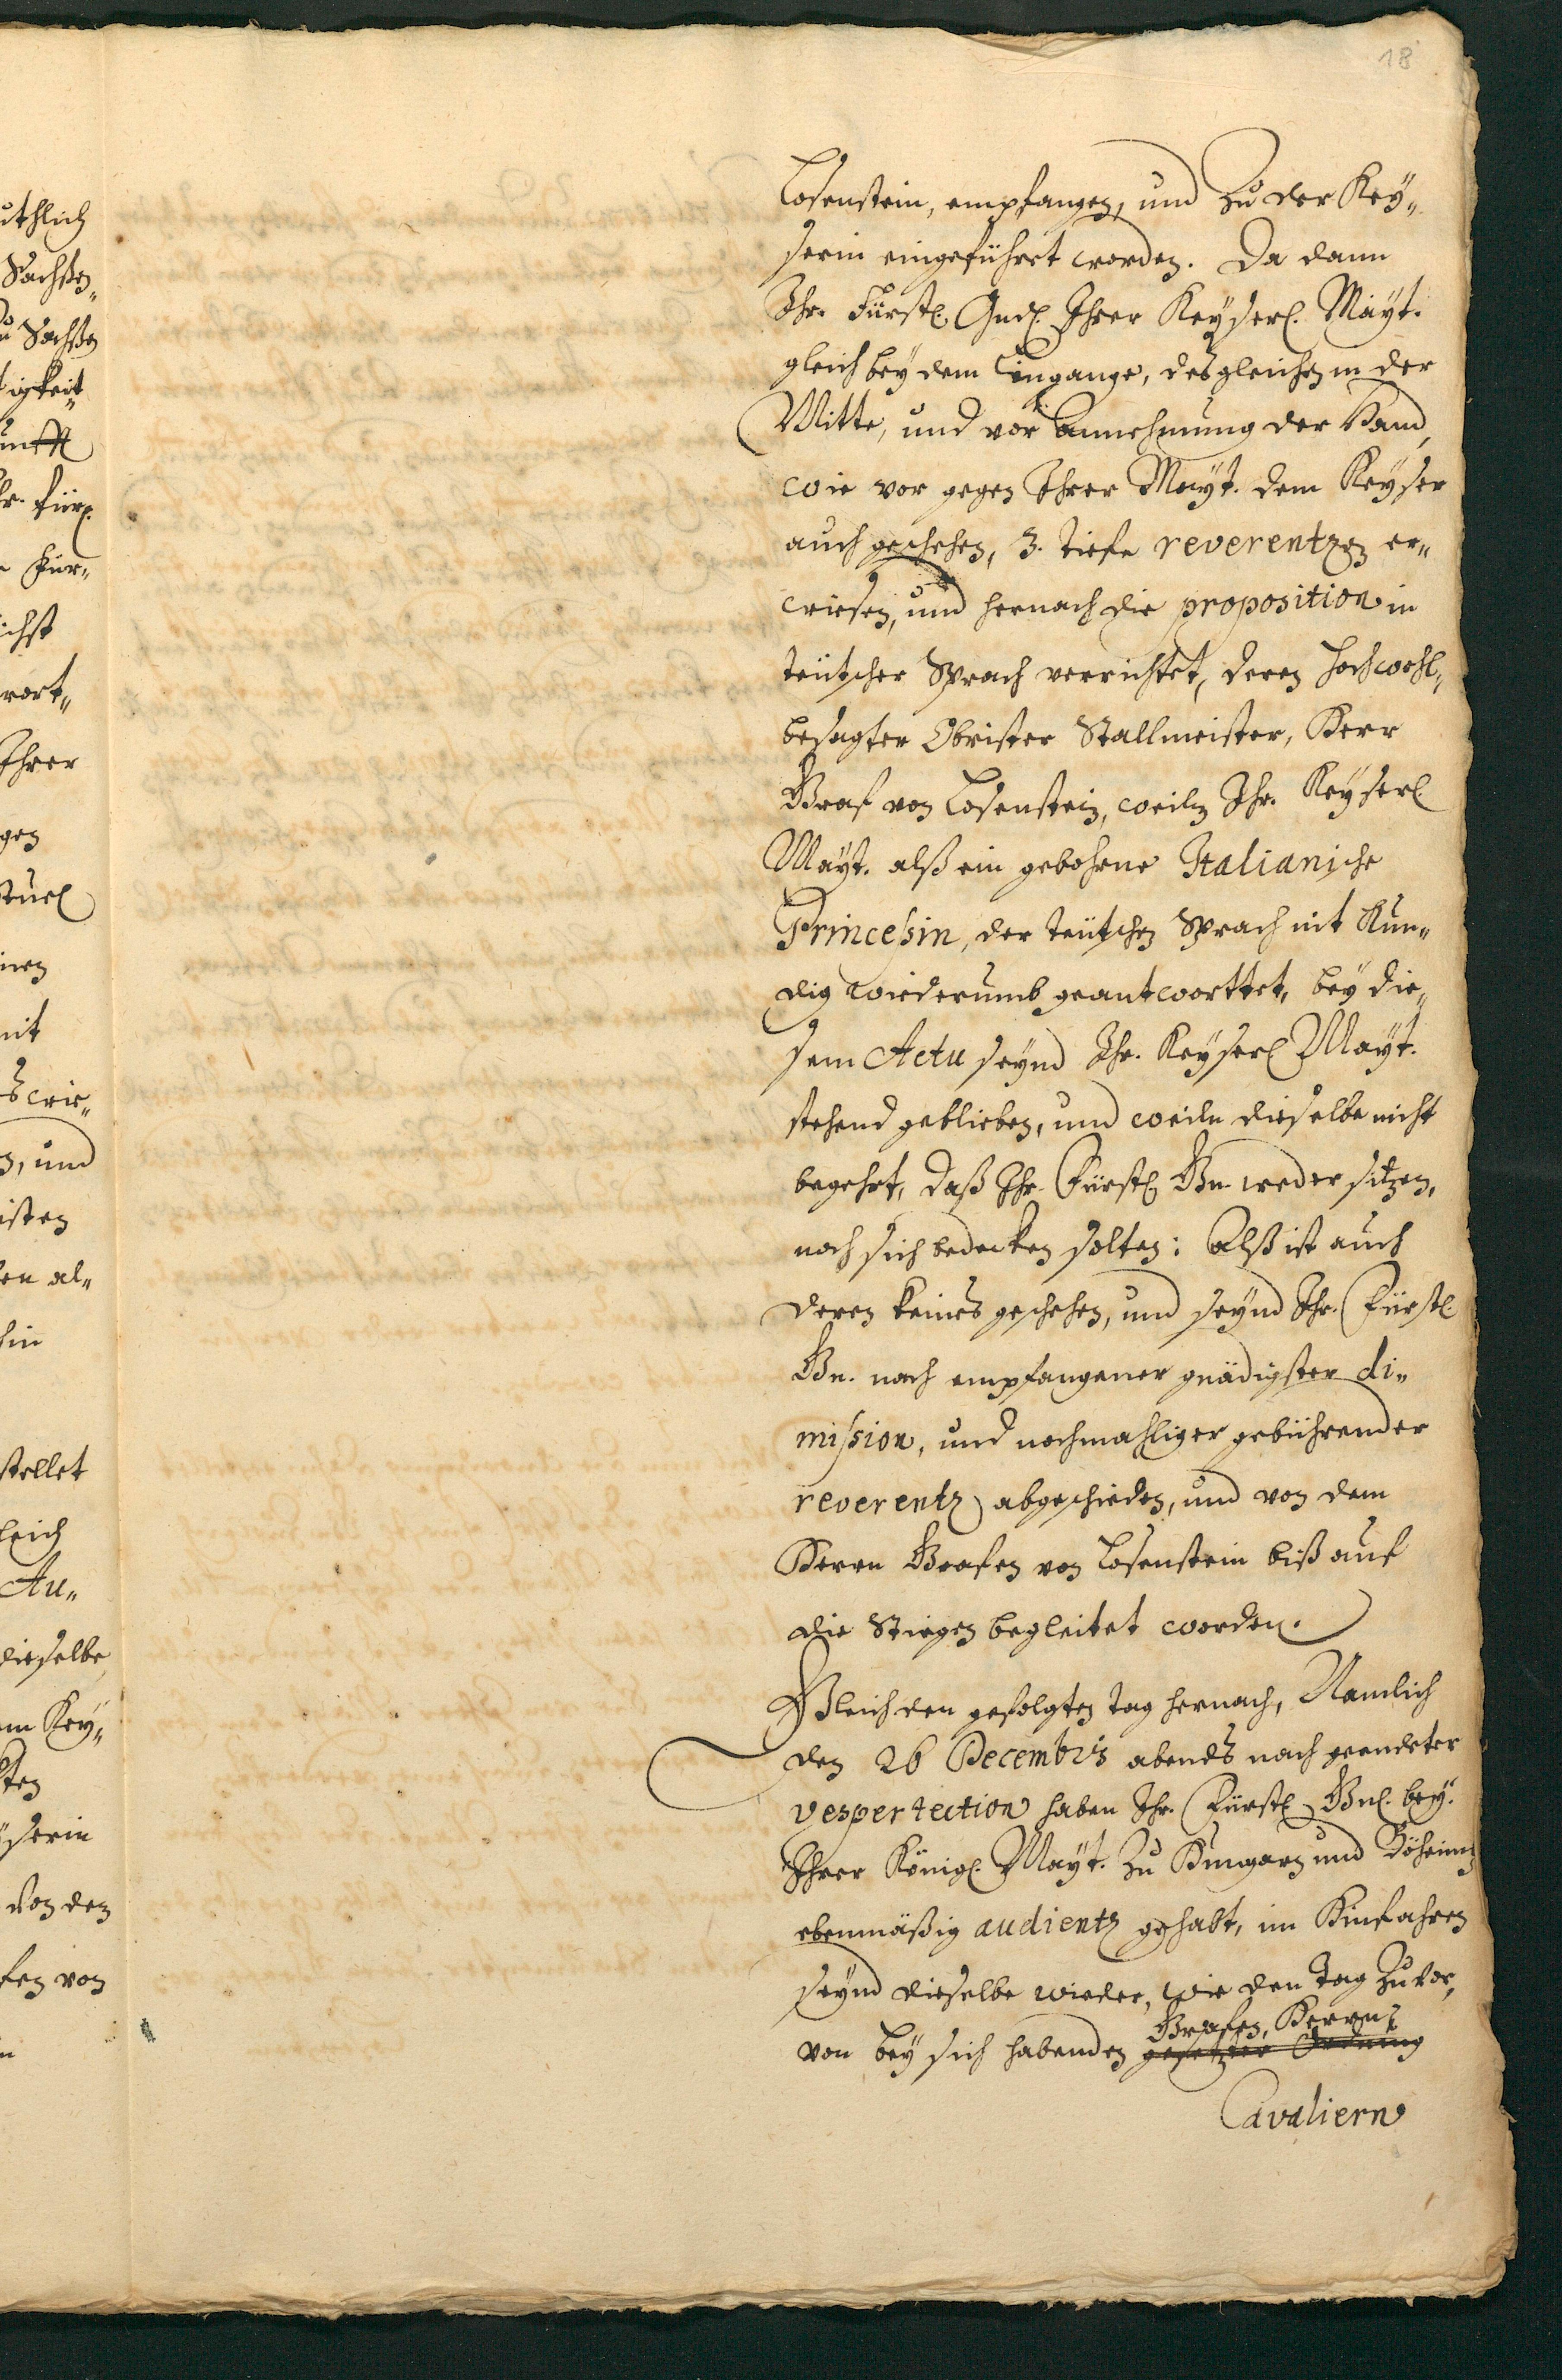 18
Losenstein, empfangen, und Zu der Key„
serin eingeführet worden. Da dann
Ihr. Fürstl. Gnd. Ihrer Keyserl. Mayt.
gleich bey dem Eingange, desgleichen in der
Mitte, und vor Annehmung der Hand,
wie vor gegen Ihrer Mayt. dem Keyser
auch geschehen, 3. tiefe reverentzen er„
wiesen, und hernach die proposition in
teütscher Sprach verrichtet, deren hochwohl„
besagter Obrister Stallmeister, Herr
Graf von Losenstein, weiln Ihr. Keyserl
Mayt. alß ein gebohrne Italianische
Princeßin, der teütschen Sprach nit Kun„
dig wiederumb geantworttet, bey die„
sem Actu seynd Ihr. Keyserl Mayt.
stehend geblieben, und weiln dieselbe nicht
begehrt, daß Ihr. Fürstl Gn. weder sitzen,
noch sich bedecken solten: Alß ist auch
deren keines geschehen, und seynd Ihr. Fürstl
Gn. nach empfangener gnädigster di„
mission, und nochmahliger gebührender
reverentz abgeschieden, und von dem
Herrn Grafen von Losenstein biß auf
die Stiegen begleitet worden.
Gleich den gefolgten tag hernach, Nemlich
den 26 Decembris abends nach geendeter
vespertection haben Ihr. Fürstl Gnl. bey
Ihrer Königl. Mayt. Zu Hungarn und Böheimb
ebenmäßig audientz gehabt, im Hinfahren
seynd dieselbe wieder, wie den tag Zuvor,
Grafen, Herrn
von bey sich habenden gesetzter Ordnung
Cavaliern
uthlich
Sachßen„
zu Sachßen
tigkeit„
unfft
Ihr. Fürl.
Für„
ichst
wort„
Ihrer
gen
mit
wie„
n, und
isten
en al„
hin
stellet
leich
Au„
dieselbe
em Key„
ten
yserin
von den
fen von